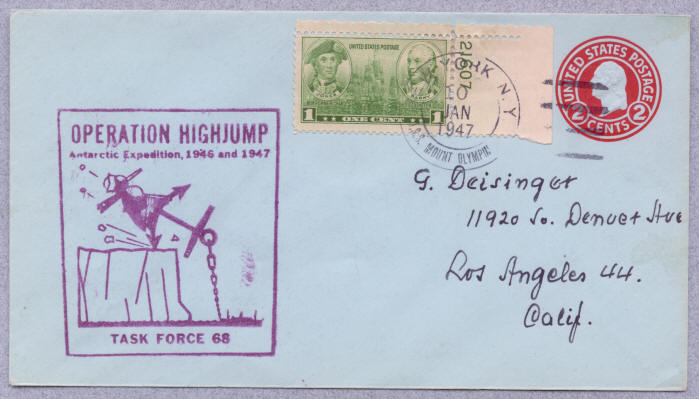 OPERATION HIGHJUMP
Antarctic Expedition, 1946 and 1947
TASK FORCE 68
UNITED STATES POSTAGE
1 ONE CENT 1
21607
YORK N.Y.
10
JAN
1947
MOUNT OLYMPUS
UNITED STATES POSTAGE
2 CENTS 2
G. Deisinger
11920 So. Denver Ave
Los Angeles 44.
Calif.